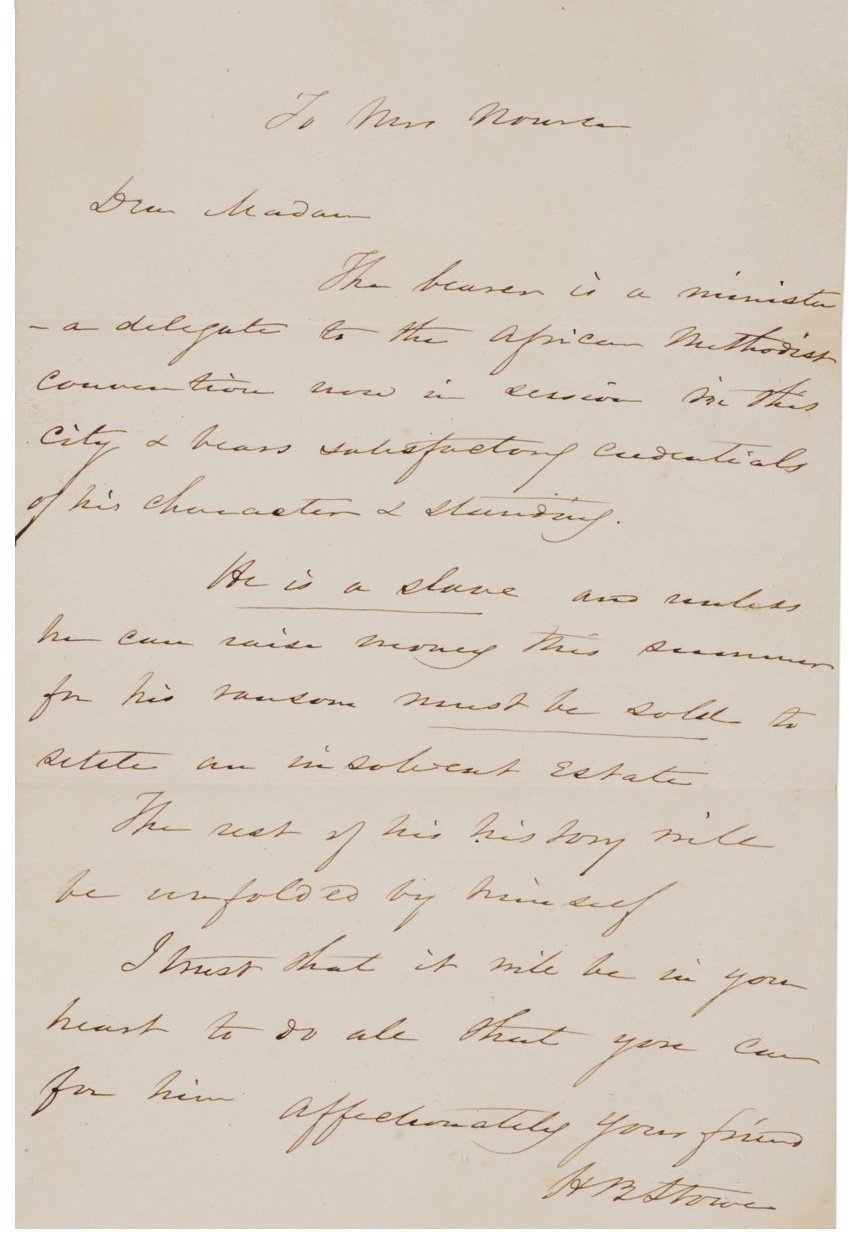 To Mrs Nourse
Dear Madam
The bearer is a minister
- a delegate to the African Methodist
convention now in session in this
city & bears satisfactory credentials
of his character & standing.
He is a slave and unless
he can raise money this summer
for his ransom must be sold to
settle an insolvent Estate
The rest of his history will
be unfolded by himself
I trust that it will be in your
heart to do all that you can
for him affectionately your friend
H B Stowe